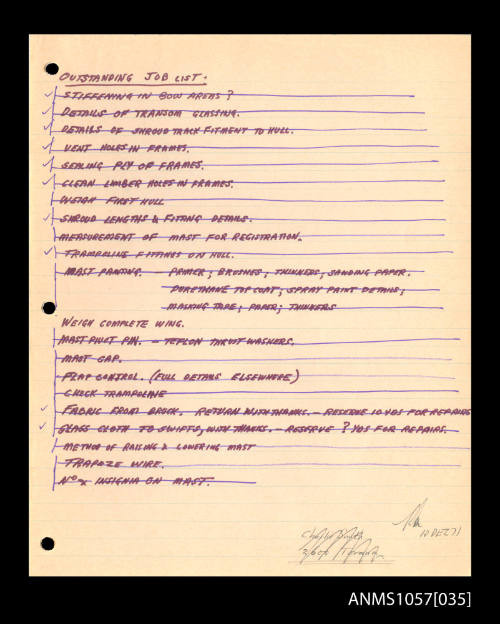 OUTSTANDING JOB LIST.
✓ STIFFENING IN BOW AREAS?
✓ DETAILS OF TRANSOM GLASSING.
✓ DETAILS OF SHROUD TRACK FITMENT TO HULL.
✓ VENT HOLES IN FRAMES.
✓ SEALING PLY OF FRAMES.
✓ CLEAN LIMBER HOLES IN FRAMES.
WEIGH FIRST HULL
✓ SHROUD LENGTHS & FITTING DETAILS.
MEASUREMENT OF MAST FOR REGISTRATION.
✓ TRAMPOLINE FITTINGS ON HULL.
MAST PAINTING. – PRIMER; BRUSHES; THINNERS, SANDING PAPER.
PURETHANE TOP COAT; SPRAY PAINT DETAILS;
MASKING TAPE; PAPER; THINNERS
WEIGH COMPLETE WING.
MAST PIVOT PIN. – TEFLON THRUST WASHERS.
MAST CAP.
FLAP CONTROL. (FULL DETAILS ELSEWHERE)
CHECK TRAMPOLINE
✓ FABRIC FROM BROCK. RETURN WITH THANKS. – RESERVE 10 YDS FOR REPAIRS
✓ GLASS CLOTH TO SWIFTS, WITH THANKS. – RESERVE ? YDS FOR REPAIRS.
METHOD OF RAISING & LOWERING MAST
TRAPEZE WIRE.
INSIGNIA ON MAST.
10 DEC 71
ANMS1057[035]